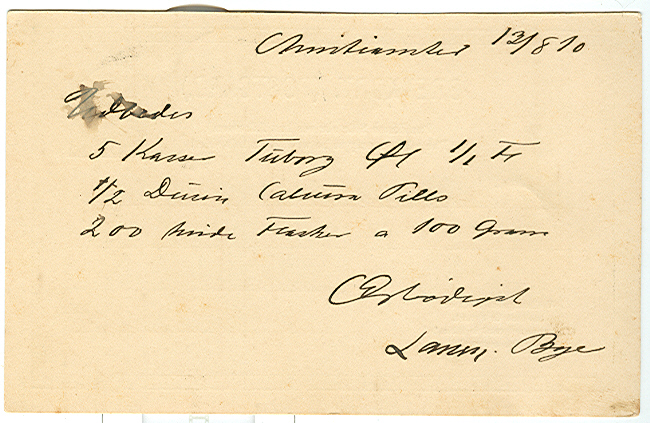 Christiansted 13/8 10
Udbedes
5 Kasser Tuborg Øl 1/1 Fl
1/2 Dusin Caluura Pills
200 hvide Flasker a 100 Gram
Ærbødigst
Bye